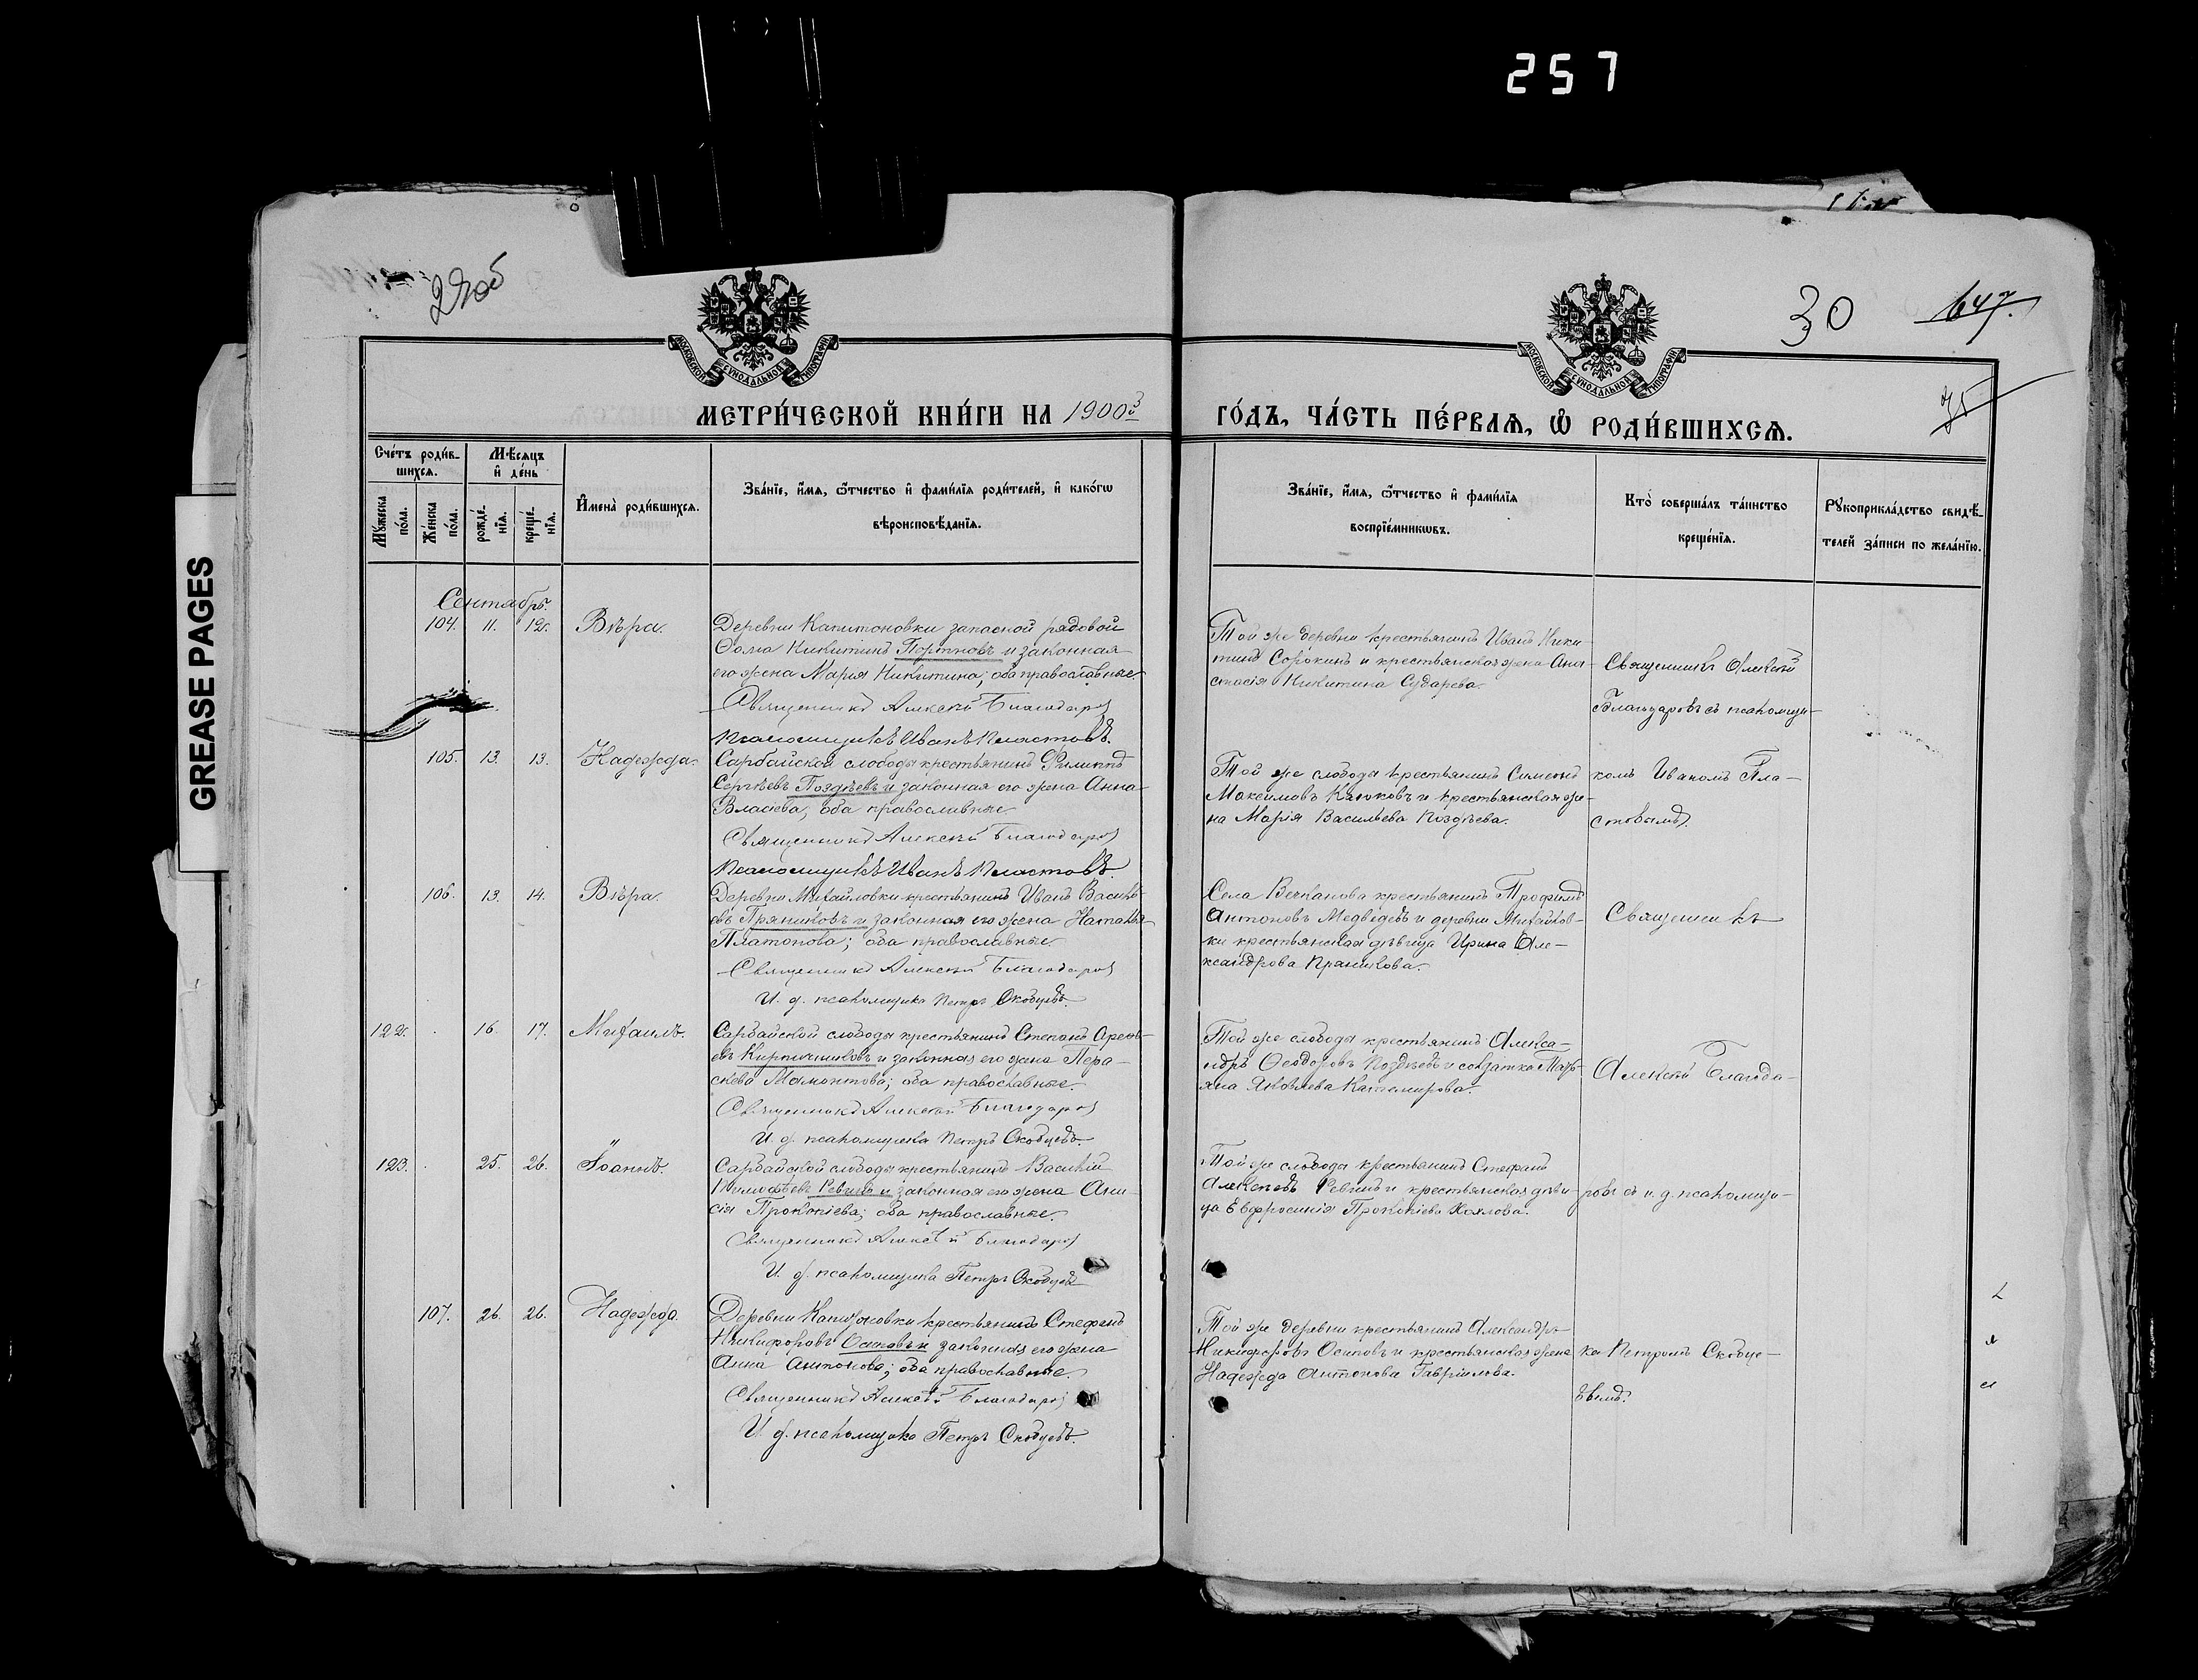 257
GREASE PAGES
29об
30
647.
МОСКОВСКОЙ СѴНОДАЛЬНОЙ ТИПОГРАФІИ
МОСКОВСКОЙ СѴНОДАЛЬНОЙ ТИПОГРАФІИ
МЕТРИ́ЧЕСКОЙ КНИ́ГИ НА 1900й
ГО́ДЪ, ЧА́СТЬ ПЕ́РВАѦ, Ѡ҆ РОДИ́ВШИХСѦ.
Сче́тъ роди́в-
шихсѧ.
Мꙋ́жеска
по́ла.
Же́нска
по́ла.
Мѣ́сѧцъ
и҆ де́нь
рожде́-
нїѧ.
креще́-
нїѧ.
И҆мена̀ роди́вшихсѧ.
Зва́нїе, и҆́мѧ, ѻ҆́тчество и҆ фами́лїѧ роди́телей, и҆ како́гѡ
вѣроисповѣ́данїѧ.
Зва́нїе, и҆́мѧ, ѻ҆́тчество и҆ фами́лїѧ
воспрїе́мникѡвъ.
Кто̀ соверша́лъ та́инство
креще́нїѧ.
Рꙋкоприкла́дство свидѣ́-
телей за́писи по жела́нїю.
Сентябрь.
104. 11. 12. Вѣра.
Деревни Капитоновки запасной рядовой
Ѳома Никитинъ Портновъ и законная
его жена Марія Никитина; оба православные.
Священникъ Алексій Благодаровъ
Псаломщикъ Иванъ Пластовъ.
Той же деревни крестьянинъ Иванъ Ники-
тинъ Сорокинъ и крестьянская жена Ана-
стасія Никитина Сударева.
Священникъ Алексій
Благодаровъ съ псаломщи-
105. 13. 13. Надежда.
Сарбайской слободы крестьянинъ Филиппъ
Сергѣевъ Поздѣевъ и законная его жена Анна
Власіева, оба православные.
Священникъ Алексій Благодаровъ
Псаломщикъ Иванъ Пластовъ.
Той же слободы крестьянинъ Симеонъ
Максимовъ Клюковъ и крестьянская же-
на Марія Васильева Поздѣева.
комъ Иваномъ Пла-
стовымъ.
106. 13. 14. Вѣра.
Деревни Михайловки крестьянинъ Иванъ Василь-
евъ Пряниковъ и законная его жена Наталія
Платонова; оба православные.
Священникъ Алексій Благодаровъ
И. д. псаломщика Петръ Скобцевъ.
Села Вечканова крестьянинъ Трофимъ
Антоновъ Медвѣдевъ и деревни Михайлов-
ки крестьянская дѣвица Ирина Але-
ксандрова Пряникова.
Священникъ
122. 16. 17. Михаилъ.
Сарбайской слободы крестьянинъ Степанъ
Кирпичниковъ и законная его жена Пара-
скева Мамонтова; оба православные.
Священникъ Алексій Благодаровъ
И. д. псаломщика Петръ Скобцевъ.
Той же слободы крестьянинъ Алекса-
ндръ Ѳеодоровъ Поздѣевъ и солдатка Тать-
яна Яковлева
Алексій Благода-
123. 25. 26. Іоаннъ.
Сарбайской слободы крестьянинъ Василій
Тимоѳеевъ Ревинъ и законная его жена Ани-
сія Прокопіева; оба православные.
Священникъ Алексій Благодаровъ
И. д. псаломщика Петръ Скобцевъ
Той же слободы крестьянинъ Стефанъ
Алексѣевъ Ревинъ и крестьянская дѣви-
ца Евфросинія Прокопіева Козлова.
ровъ съ и. д. псаломщи-
107. 26. 26. Надежда.
Деревни Капитоновки крестьянинъ Стефанъ
Никифоровъ Осиповъ и законная его жена
Анна Антонова; оба православные.
Священникъ Алексій Благодаровъ
И. д. псаломщика Петръ Скобцевъ.
Той же деревни крестьянинъ Александръ
Никифоровъ Осиповъ и крестьянская жена
Надежда Антонова Гаврилова.
ка Петромъ Скобце-
вымъ.